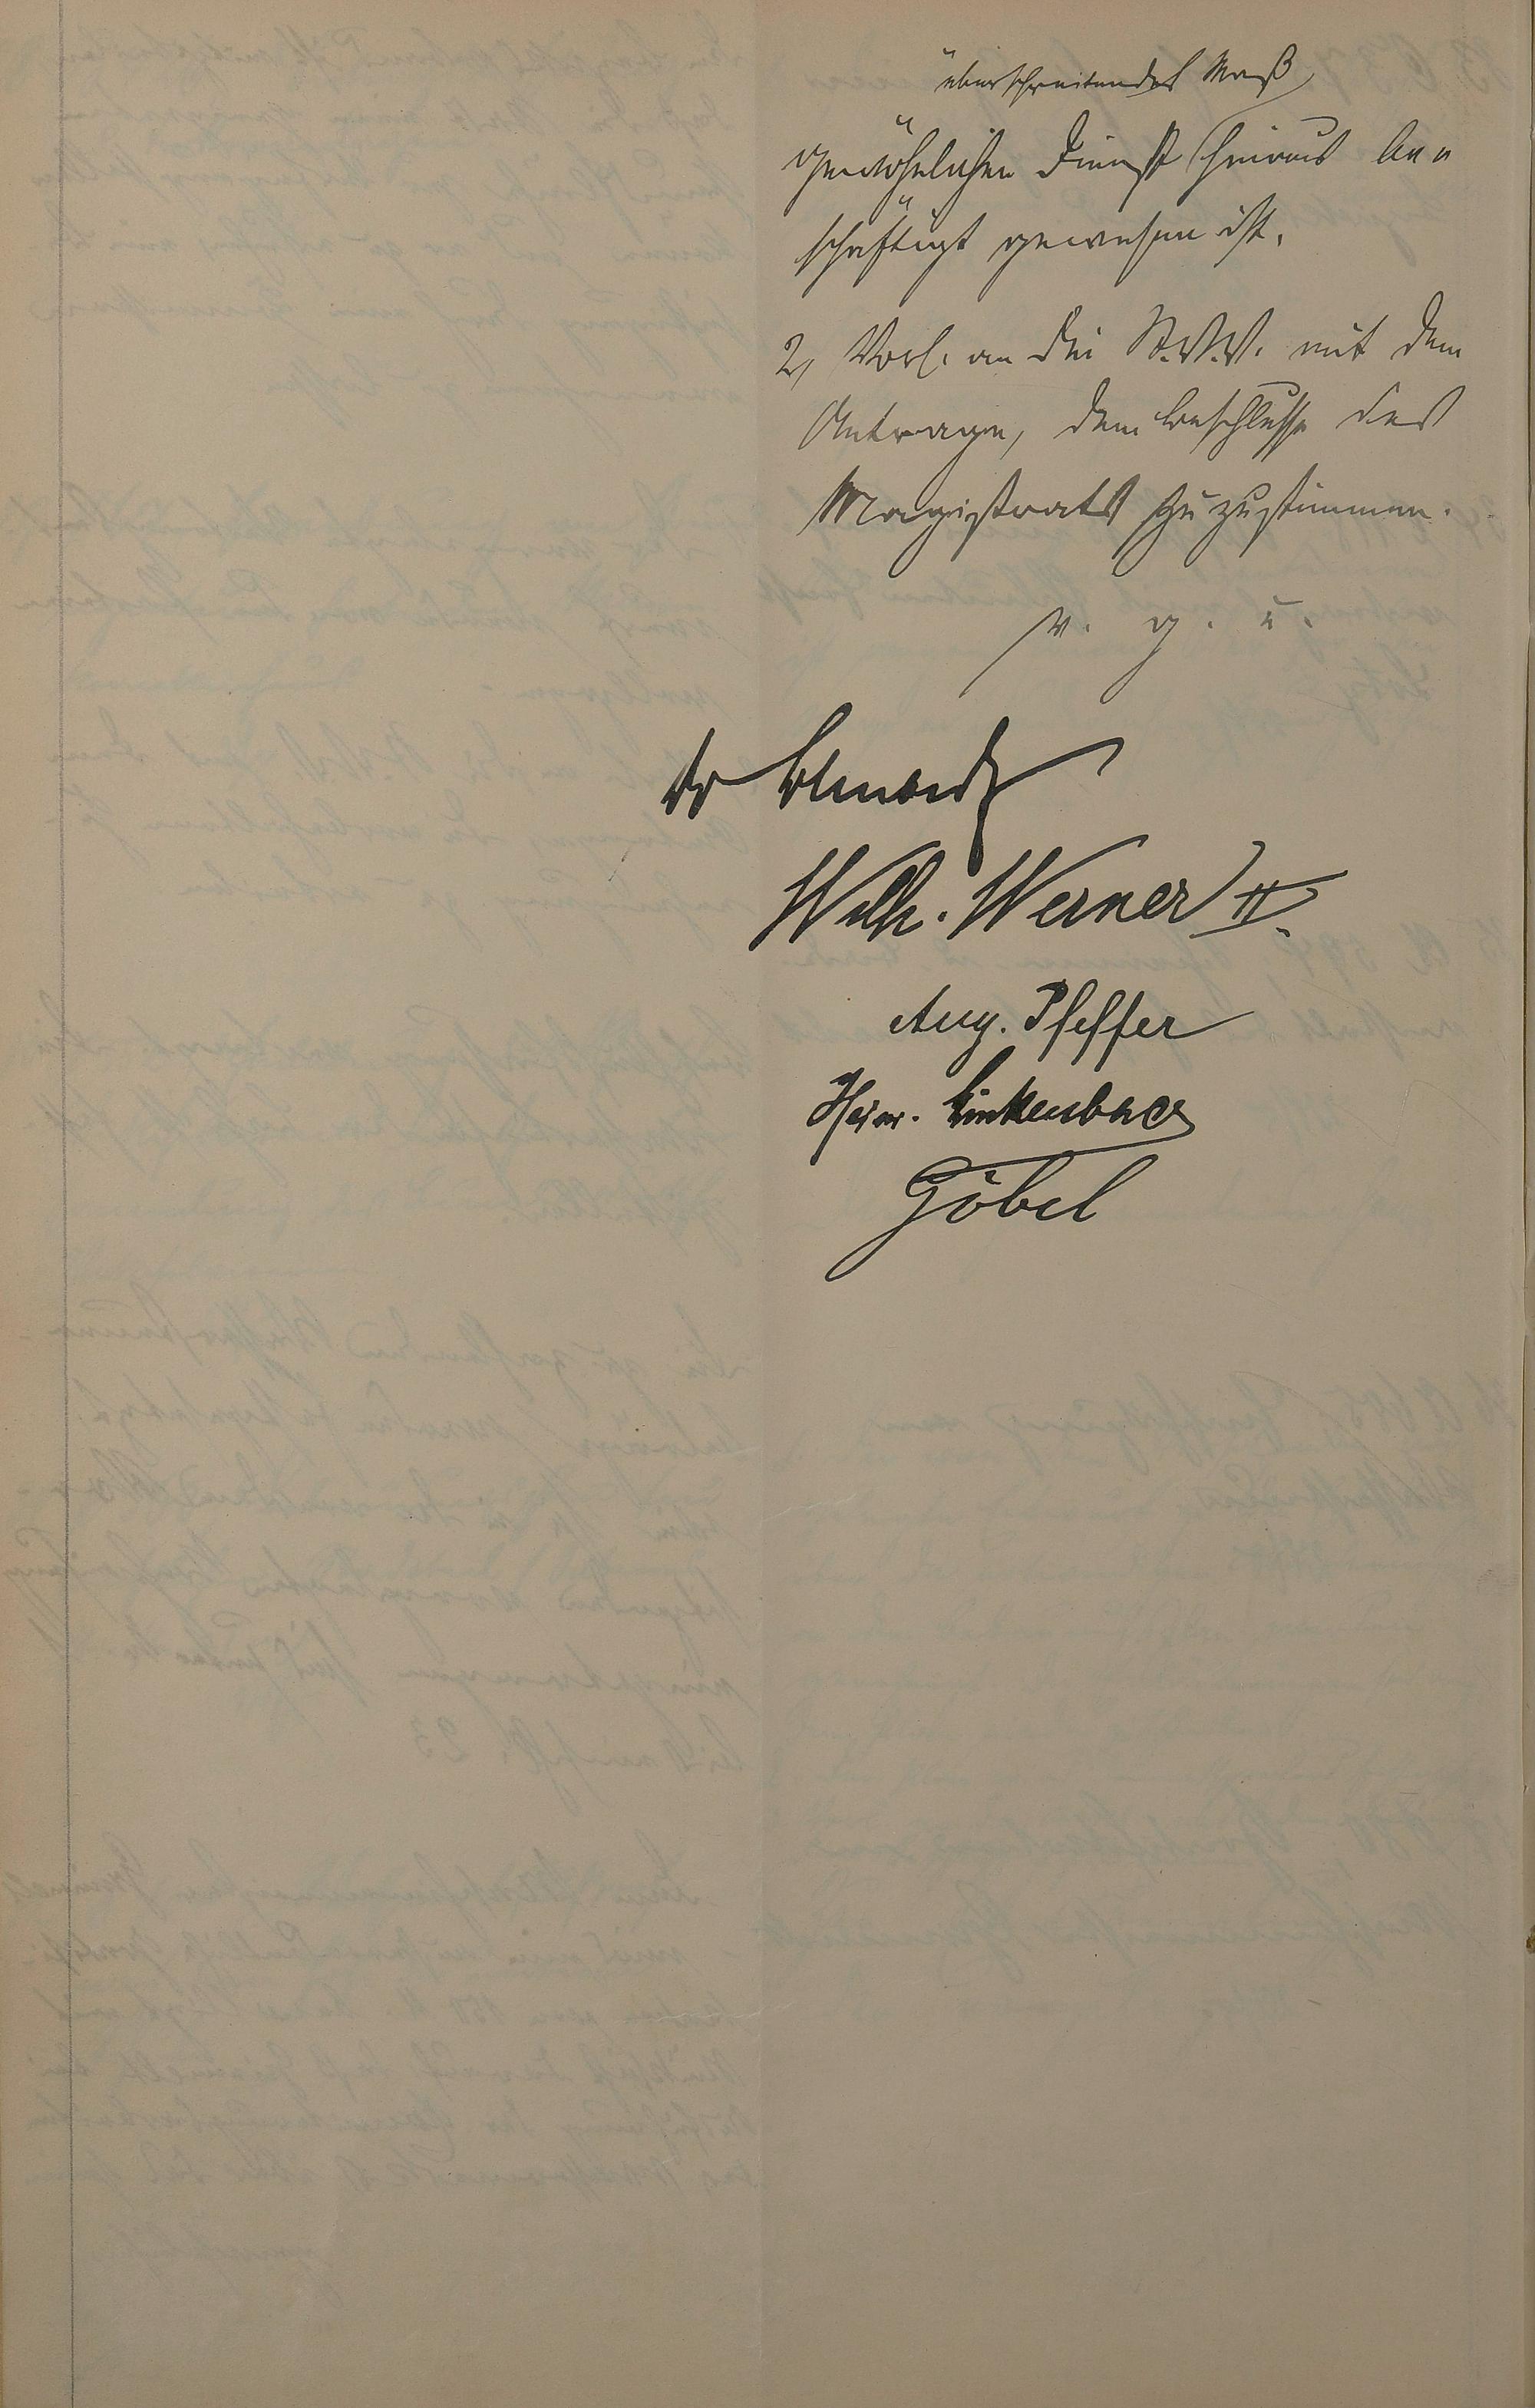 überschreitendes Maß
gewöhnlichen Dienst hinaus be=
schäftigt gewesen ist.
2, Vorl. an die St.V.V. mit dem
Antrage, dem Beschlusse des
Magistrats zuzustimmen.
v. g. u.
Dr
Wilh. Werner II.
Aug. Pfeffer
Heinr. Linkenbach
Göbel